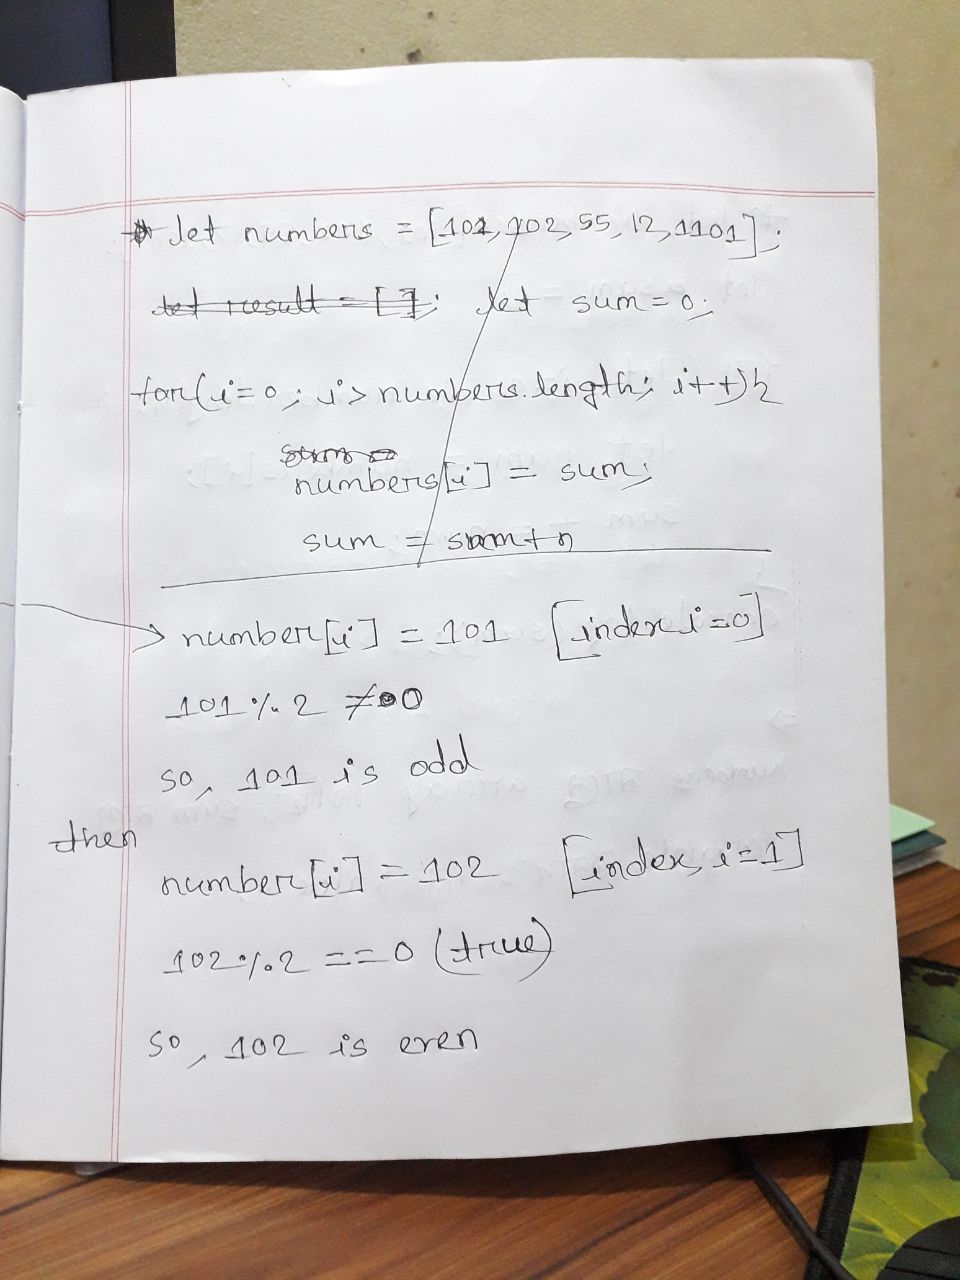 let numbers = [101, 102, 55, 12, 1101];
let result = []; let sum = 0;
for(i=0; i> numbers.length; i++){
sum =
numbers[i] = sum;
sum = sum+n
number[i] = 101 [index i=0]
101 % 2 ≠ 0
so, 101 is odd
then
number[i] = 102 [index, i=1]
102 % 2 == 0 (true)
so, 102 is even